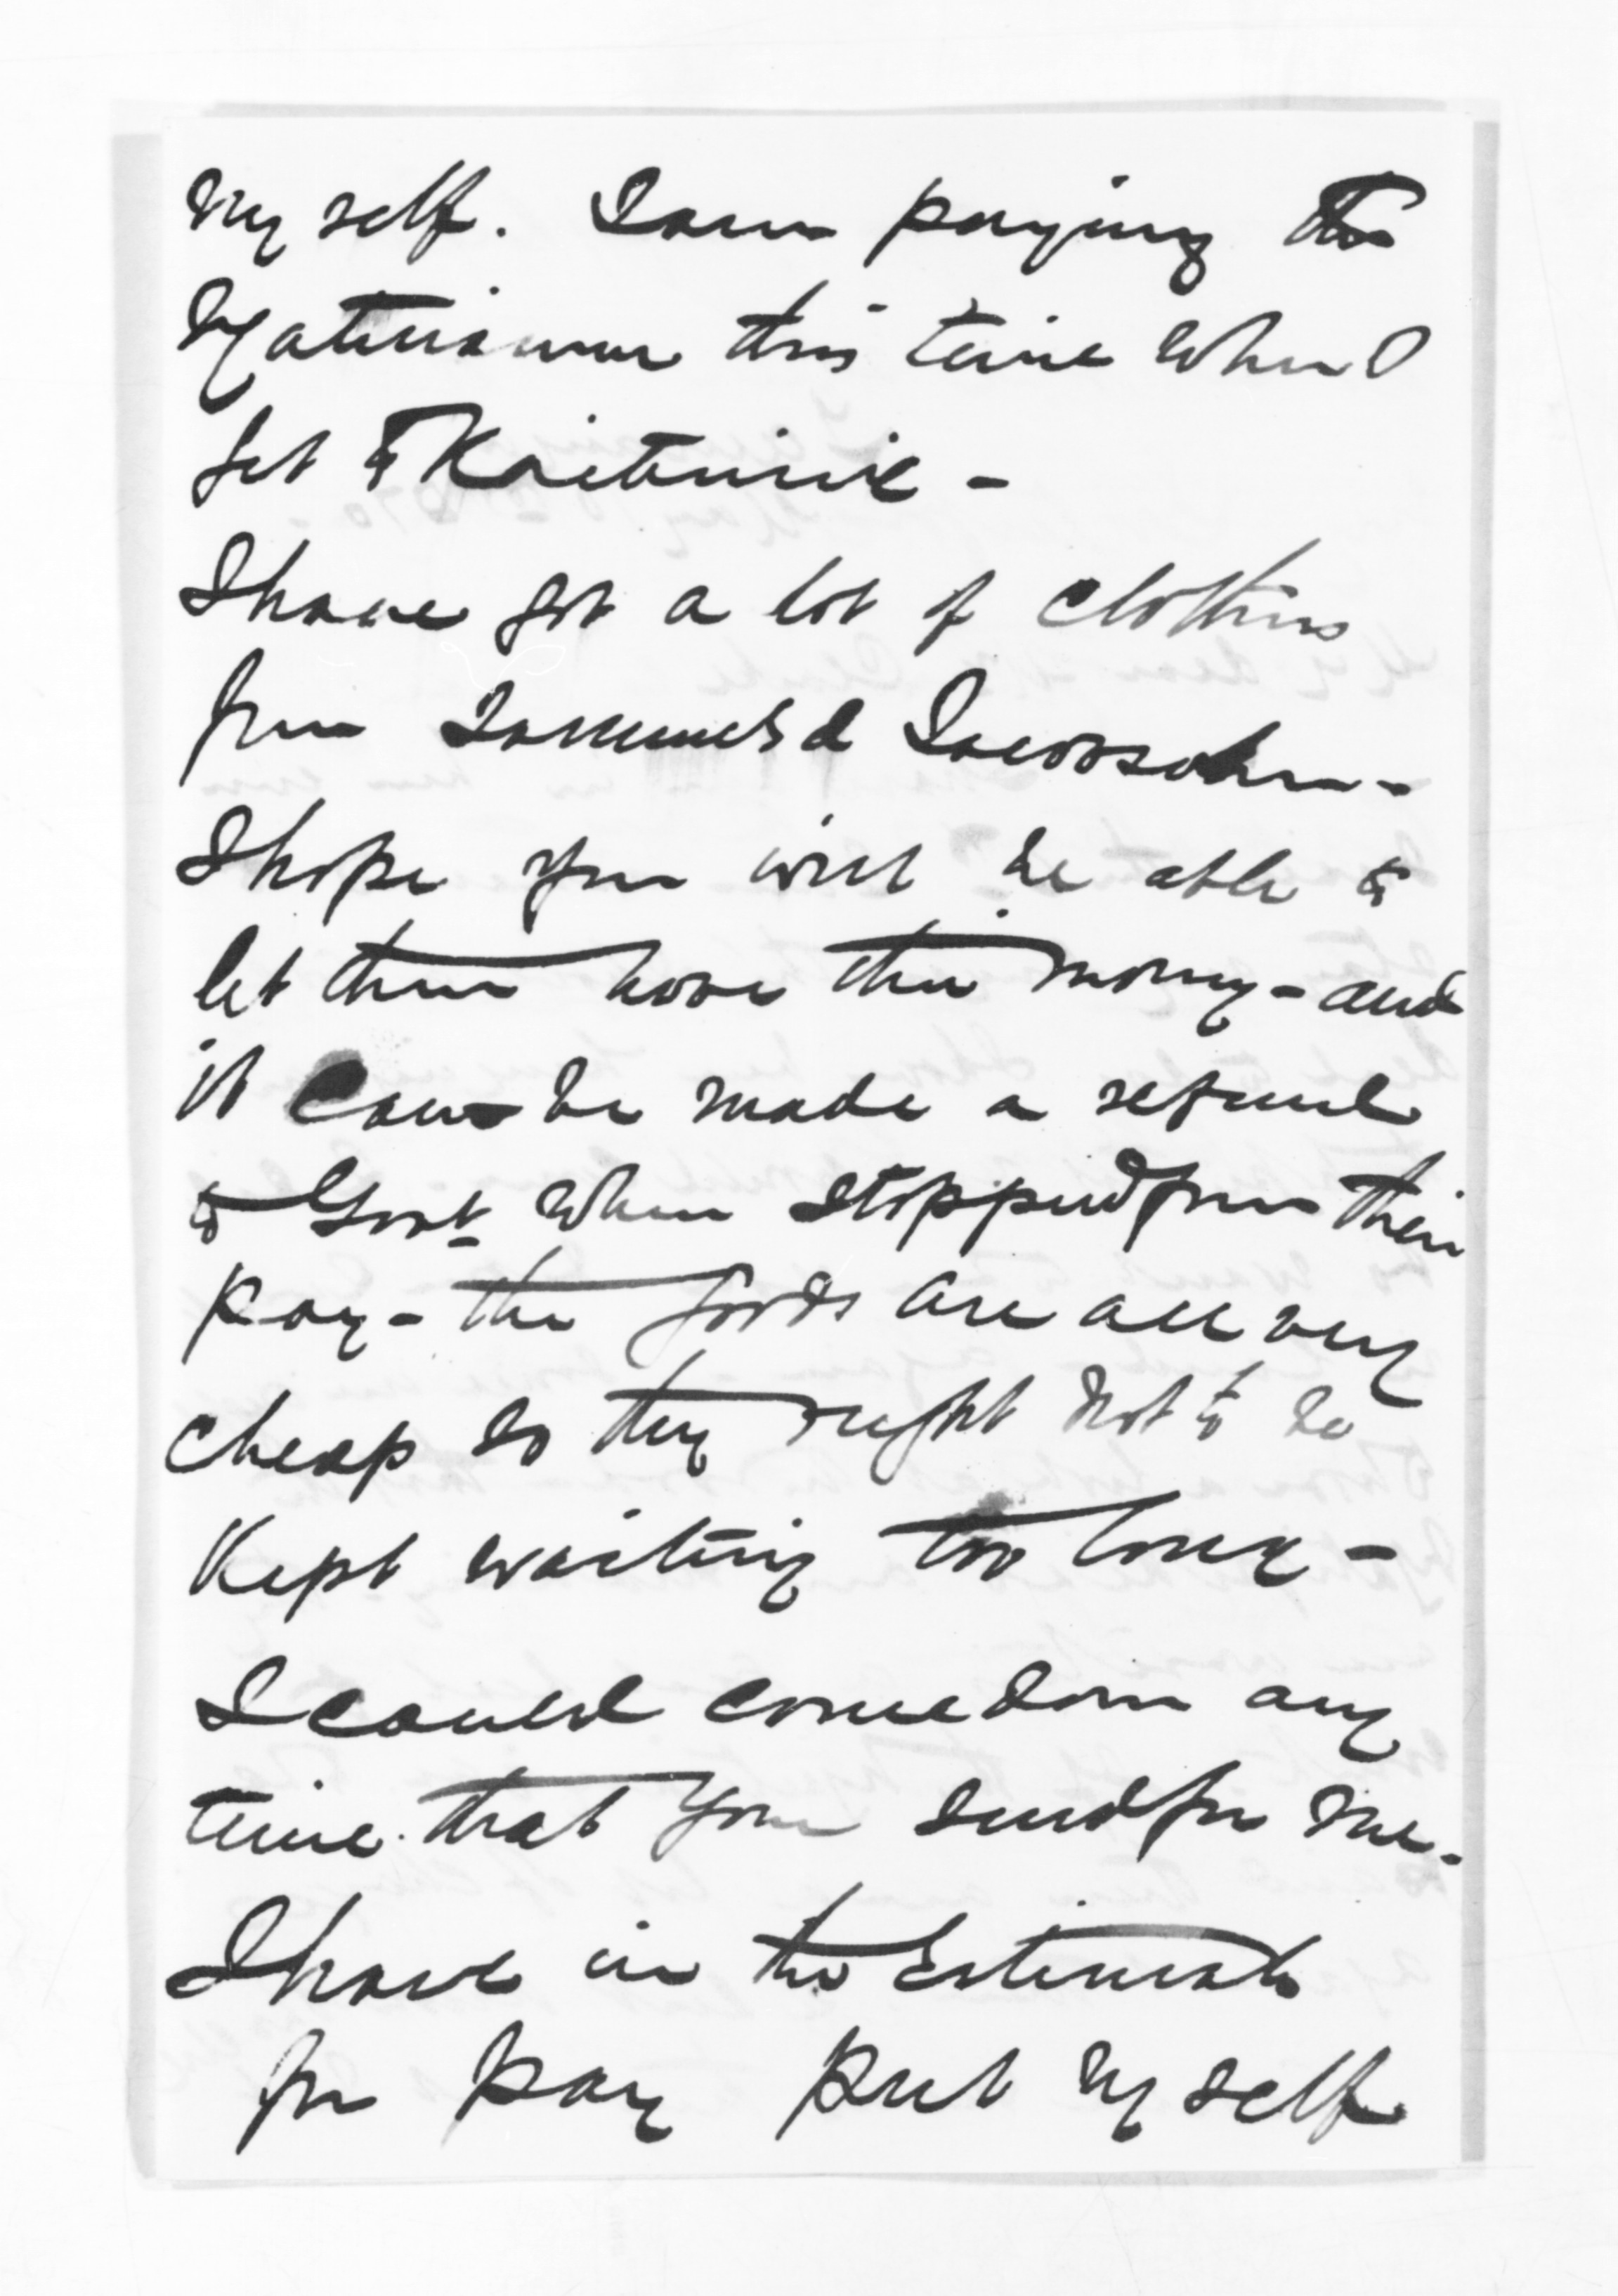 myself. I am paying the
Ngatiruanui this time when I
get to Kaitinine -
I have got a lot of clothing
from Sammels & Isaacsohn -
I hope you will be able to
let them have the money - and
it can be made a refund
to Govt when stopped from their
pay - the goods are all very
cheap so they ought not to be
kept waiting too long -
I could come down any
time that you send for me.
I have in the Estimate
for pay put myself